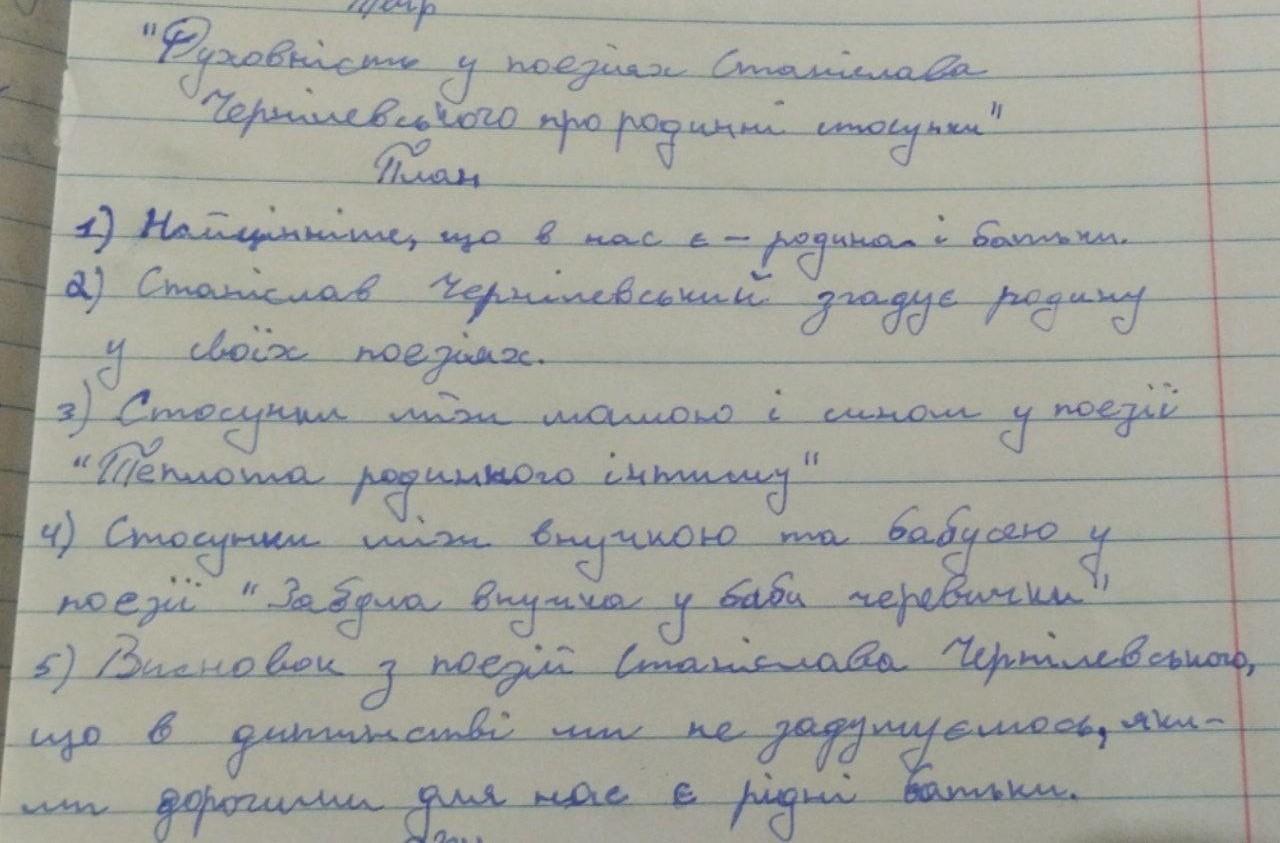 "Духовність у поезіях Станіслава
Чернілевського про родинні стосунки"
План
1) Найцінніше, що в нас є – родина і батьки.
2) Станіслав Чернілевський згадує родину
у своїх поезіях.
3) Стосунки між мамою і сином у поезії
"Теплота родинного інтиму"
4) Стосунки між внучкою та бабусею у
поезії "Забула внучка у баби черевички"
5) Висновок з поезій Станіслава Чернілевського,
що в дитинстві ми не задумуємось, яки-
ми дорогими для нас є рідні батьки.